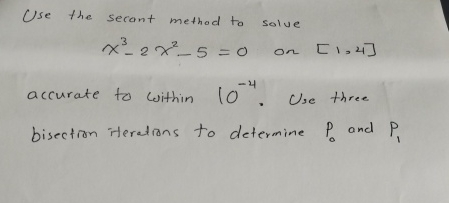 Use the secant method to solve
x³ - 2x² - 5 = 0 on [1,4]
accurate to within 10⁻⁴. Use three
bisection iterations to determine P₀ and P₁